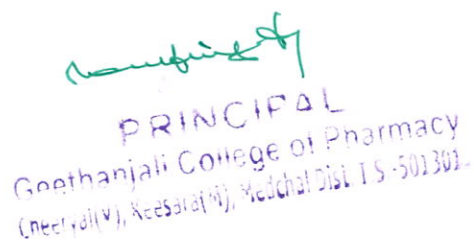 PRINCIPAL
Geethanjali College of Pharmacy
Cheeryal(V), Keesara(M), Medchal Dist. T S -501301.